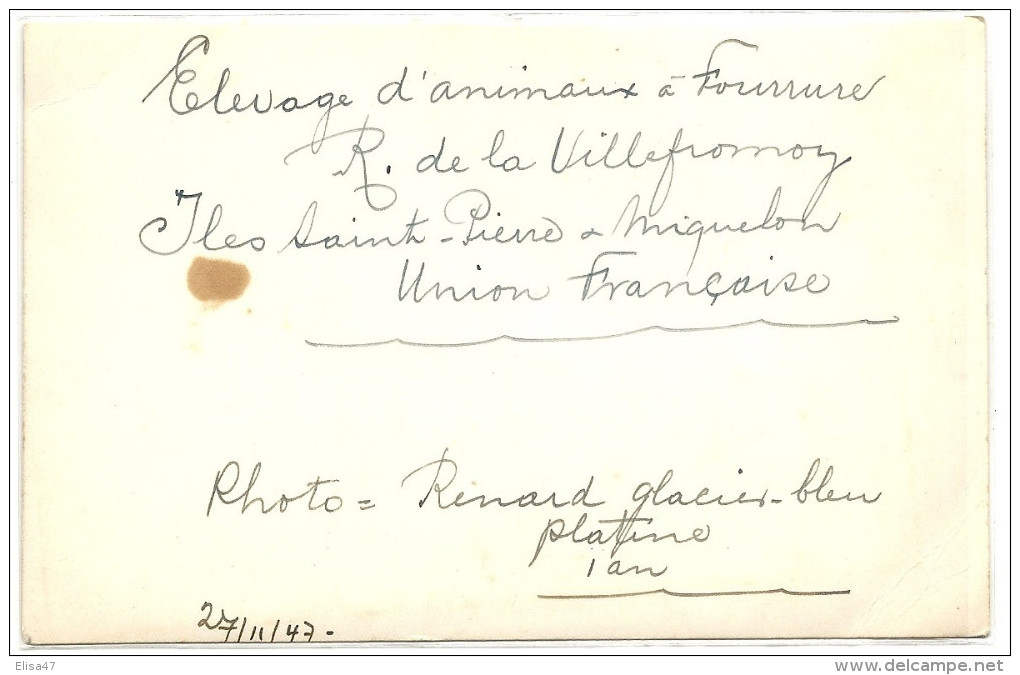 Elevage d'animaux à Fourrure
R. de la Villefromoy
Iles Saint-Pierre & Miquelon
Union Française
Photo = Renard glacier-bleu
platine
1 an
27/11/47-
Elisa47
www.delcampe.net